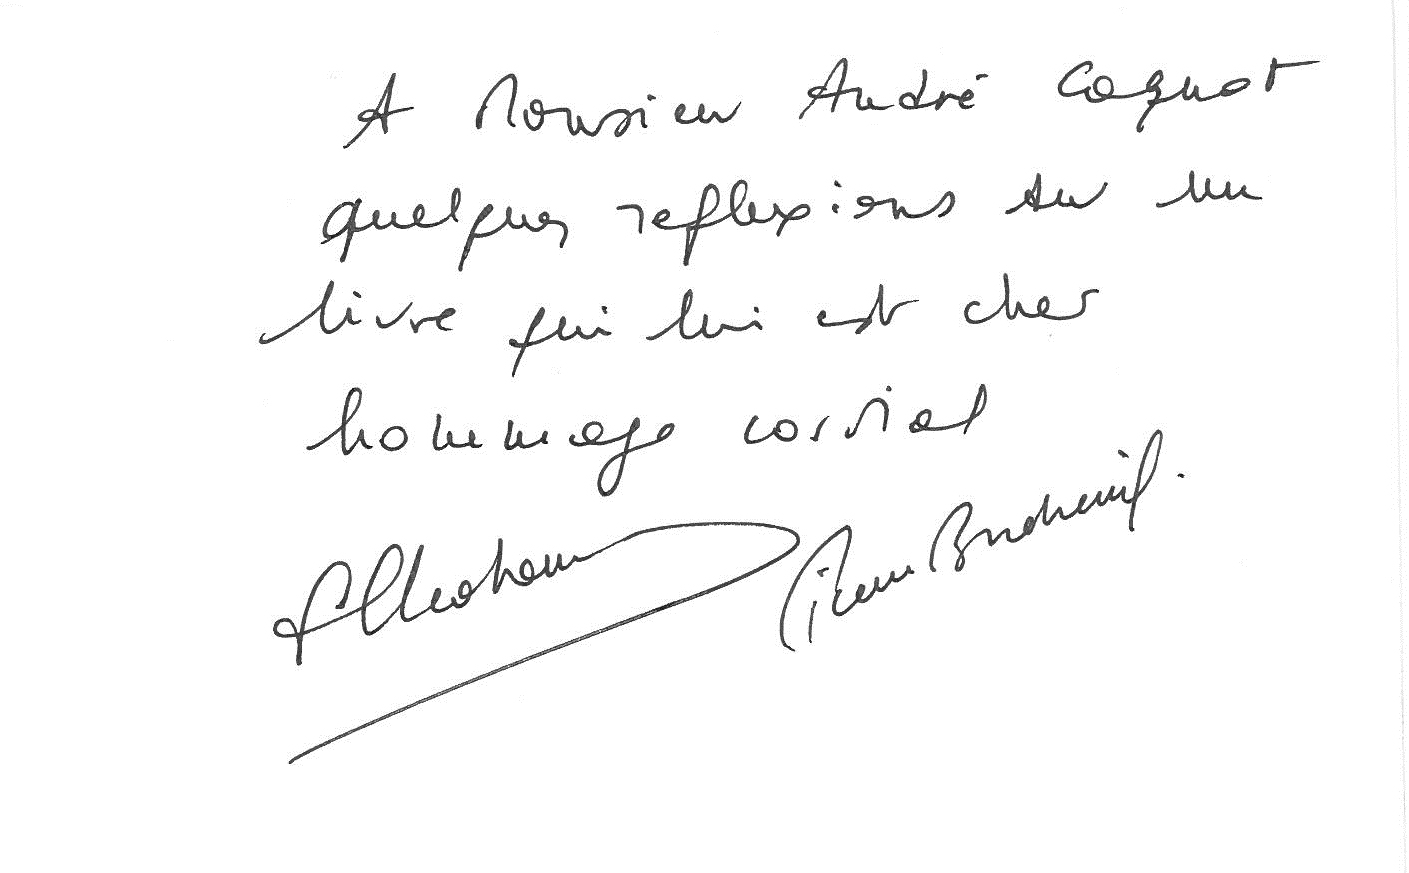 A Monsieur André Caquot
quelques reflexions sur un
livre qui lui est cher
hommage cordial
Pierre Bordreuil.